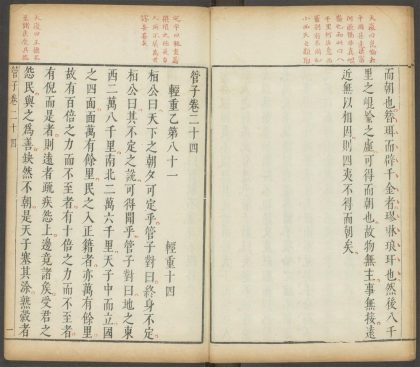 而朝也簪珥而辟千金者璆琳琅玕也然後八千
里之崐崘之虛可得而朝也故物無主事無接遠
近無以相因則四夷不得而朝矣
管子卷二十四
輕重乙第八十一
輕重十四
桓公曰天下之朝夕可定乎管子對曰終身不定
桓公曰其不定之說可得聞乎管子對曰地之東
西二萬八千里南北二萬六千里天子中而立國
之四面面萬有餘里民之入正籍者亦萬有餘里
故有百倍之力而不至者有十倍之力而不至者
有倪而是者則遠者疏疾怨上邊竟諸矦受君之
怨民與之爲善缺然不朝是天子塞其涂熟穀者
管子卷二十四
一